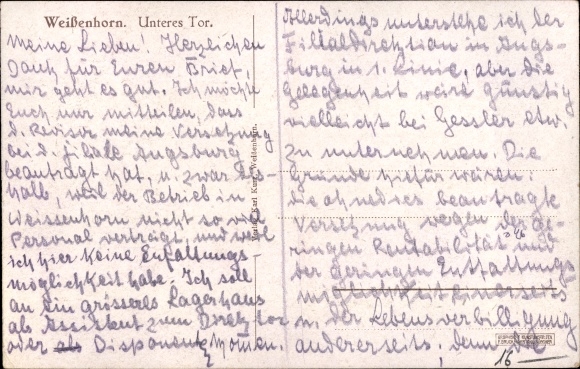 Weißenhorn. Unteres Tor.
Meine Lieben! Herzlichen
Dank für Euren Brief,
mir geht es gut. Ich möchte
Euch nur mitteilen, dass
d. Revisor meine Versetzung
bei d. Filale Augsburg
beauftragt hat, u. zwar des-
halb, weil der Betrieb in
Weissenhorn nicht so viel
Personal verträgt, und weil
ich hier keine Entfaltungs-
möglichkeit habe. Ich soll
an ein grösseres Lagerhaus
als Assistent zum Direktor
oder als Disponent kommen.
Allerdings unterstehe ich der
Filialdirektion in Augs-
burg in 1. Linie, aber die
Gelegenheit wäre günstig
vielleicht bei Gessler etw.
zu unternehmen. Die
Gründe hiefür wären:
die ohnedies beautragte
Versetzung wegen der ge-
ringen Rentabilität und
der geringen Entfaltungs
möglichkeit einerseits
u. der Lebensverbilligung
andererseits, denn die
Verlag Karl Kurz, Weißenhorn.
16